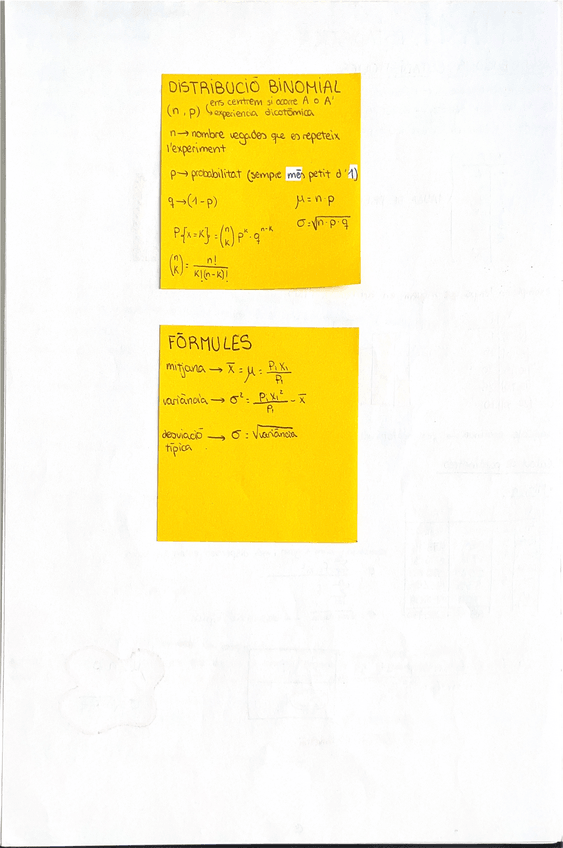 DISTRIBUCIÓ BINOMIAL
(n, p) ↳ ens centrem si ocorre A o A'
↳ experiencia dicotòmica
n → nombre vegades que es repeteix
l'experiment
p → probabilitat (sempre més petit d'1)
q → (1-p)
μ = n·p
σ = √n·p·q
P{x=K} = (n K) p^K · q^n-K
(n K) = n! / K!(n-K)!
FÓRMULES
mitjana → x̄ = μ = Pi Xi / Pi
variància → σ² = Pi Xi² / Pi - x̄
desviació → σ = √variància
típica